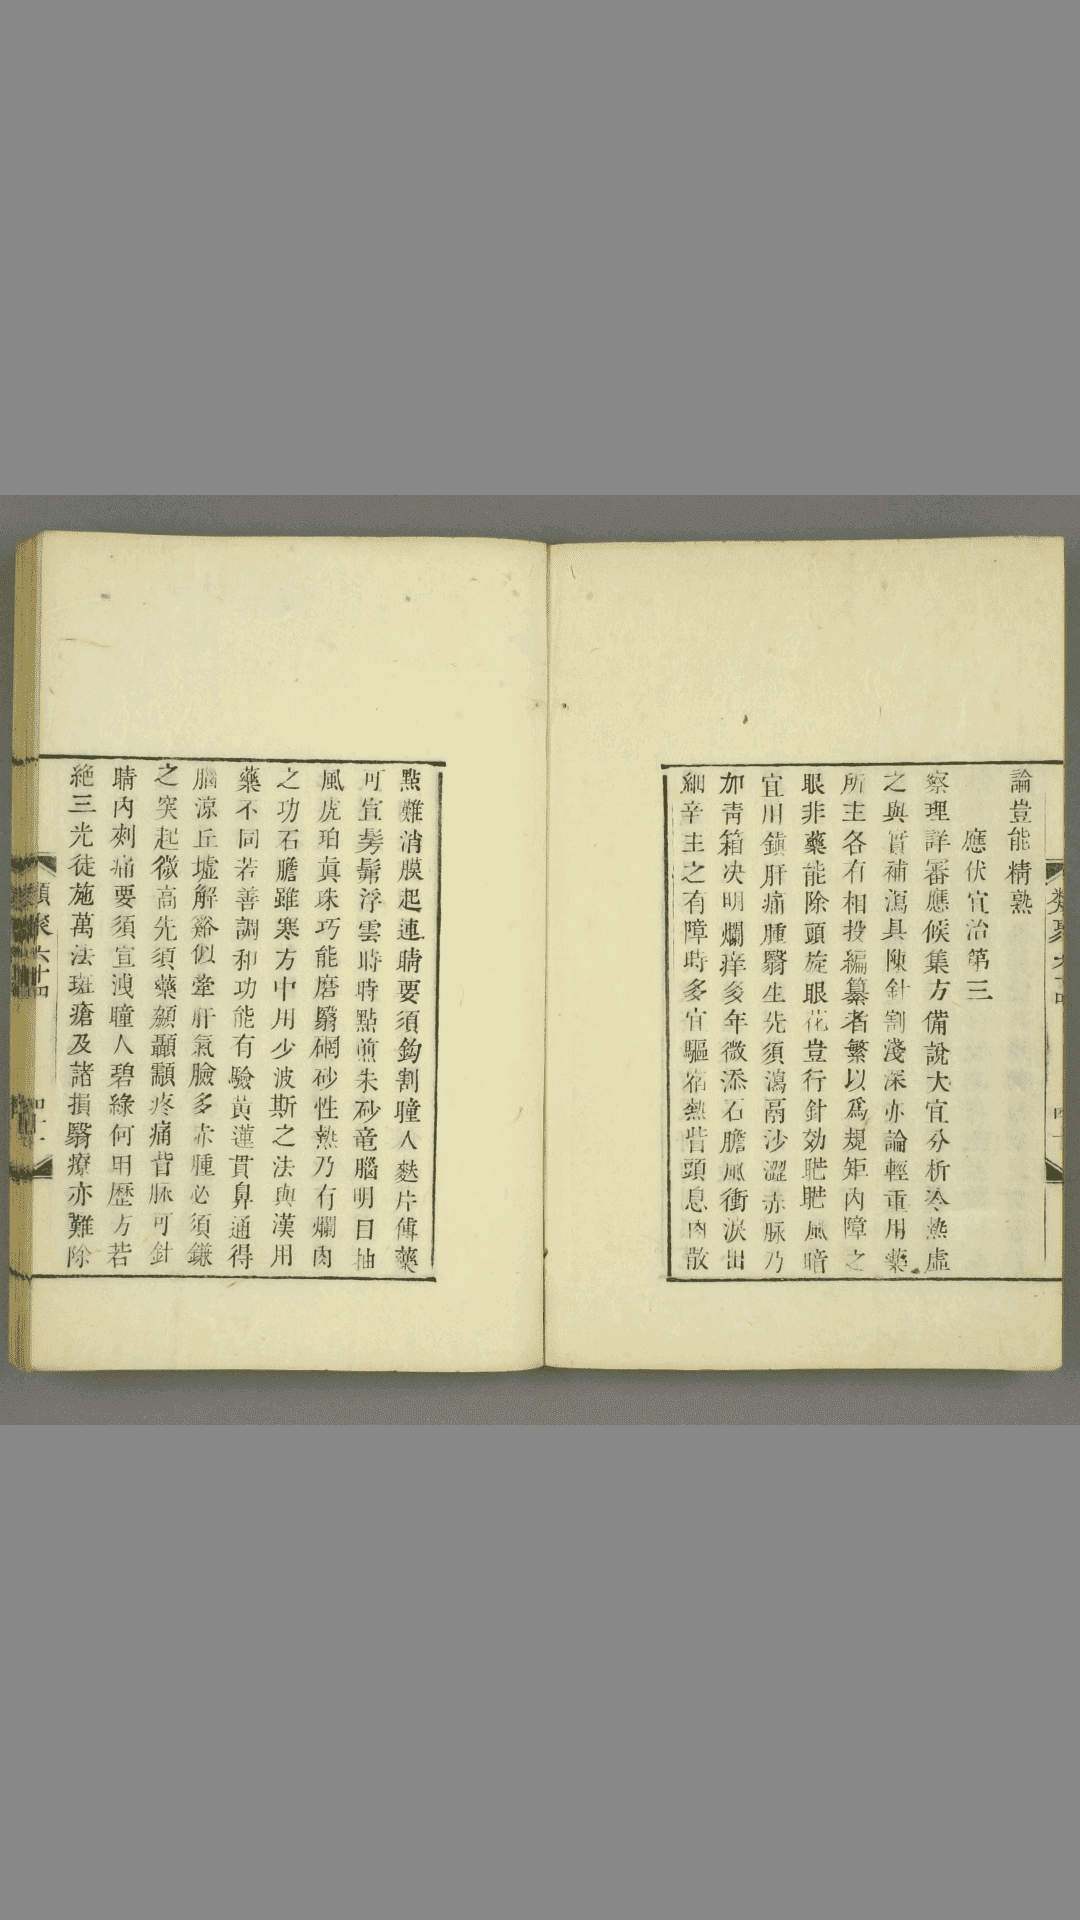 論豈能精熟
應伏宜治第三
察理詳審應候集方備說大宜分析冷熱虛
之與實補瀉具陳針割淺深亦論輕重用藥
所主各有相投編纂者繁以爲規矩內障之
眼非藥能除頭旋眼花豈行針効䀮䀮風暗
宜用鎮肝痛腫翳生先須瀉鬲沙澀赤脉乃
加靑箱决明爛痒多年微添石膽風衝淚出
細辛主之有障時多宜驅宿熱眥頭息肉散
點難消膜起連睛要須鈎割瞳人麩片傅藥
可宜髣髴浮雲時時點煎朱砂竜腦明目抽
風虎珀眞珠巧能磨翳硇砂性熱乃有爛肉
之功石膽雖寒方中用少波斯之法與漢用
藥不同若善調和功能有驗黃蓮貫鼻通得
腦涼丘墟解谿似牽肝氣臉多赤腫必須鎌
之突起微高先須藥熨顳顬疼痛背脉可針
睛內刺痛要須宣洩瞳人碧綠何用歷方若
絶三光徒施萬法斑瘡及諸損翳療亦難除
類聚六十四